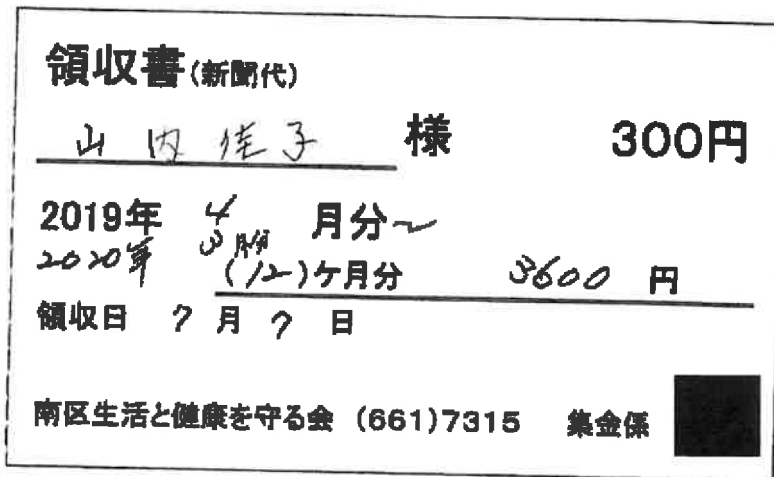 領収書(新聞代)
山内佳子 様 300円
2019年 4 月分~
2020年 3月分
(12)ケ月分 3600 円
領収日 7 月 7 日
南区生活と健康を守る会 (661)7315 集金係